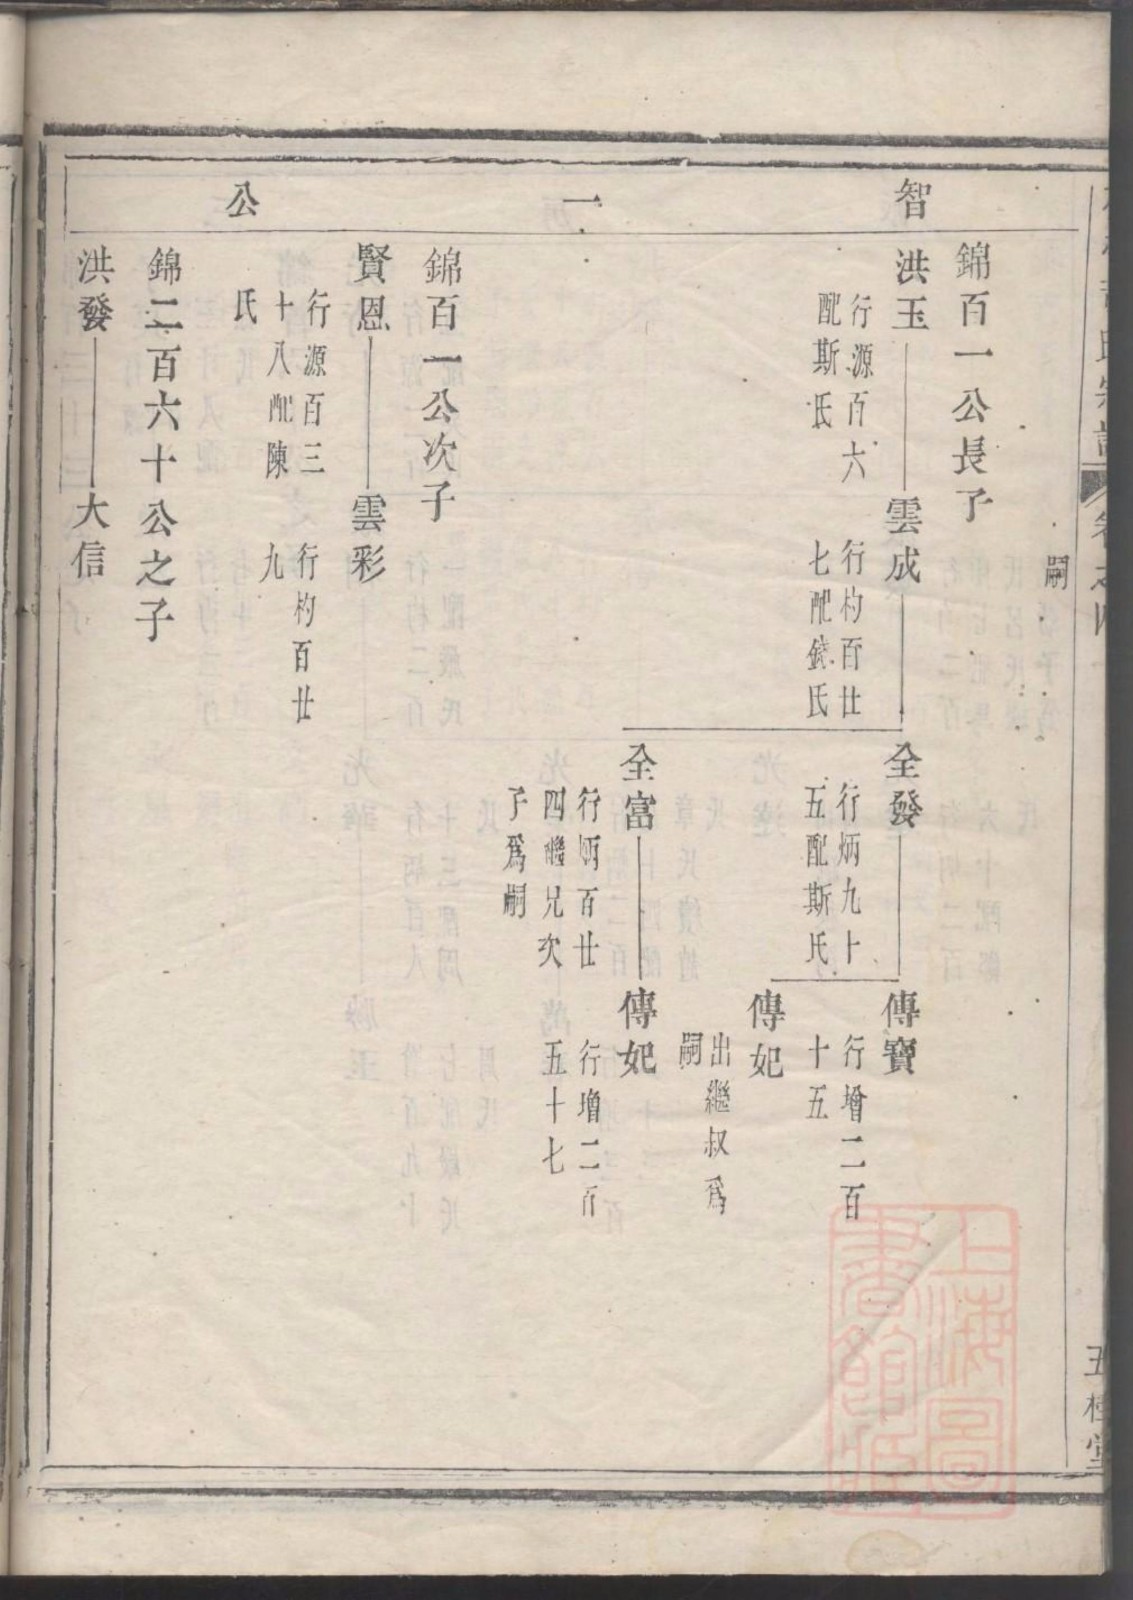 智一公
嗣
錦百一公長子
洪玉
行源百六
配斯氏
雲成
行杓百廿
七配錢氏
全發
行炳九十
五配斯氏
傳寶
行增二百
十五
傳妃
出繼叔爲
嗣
全富
行炳百廿
四繼兄次
子爲嗣
傳妃
行增二百
五十七
錦百一公次子
賢恩
行源百三
十八配陳
氏
雲彩
行杓百廿
九
錦二百六十公之子
洪發
大信
卷之四
五桂堂
上海圖
書館藏